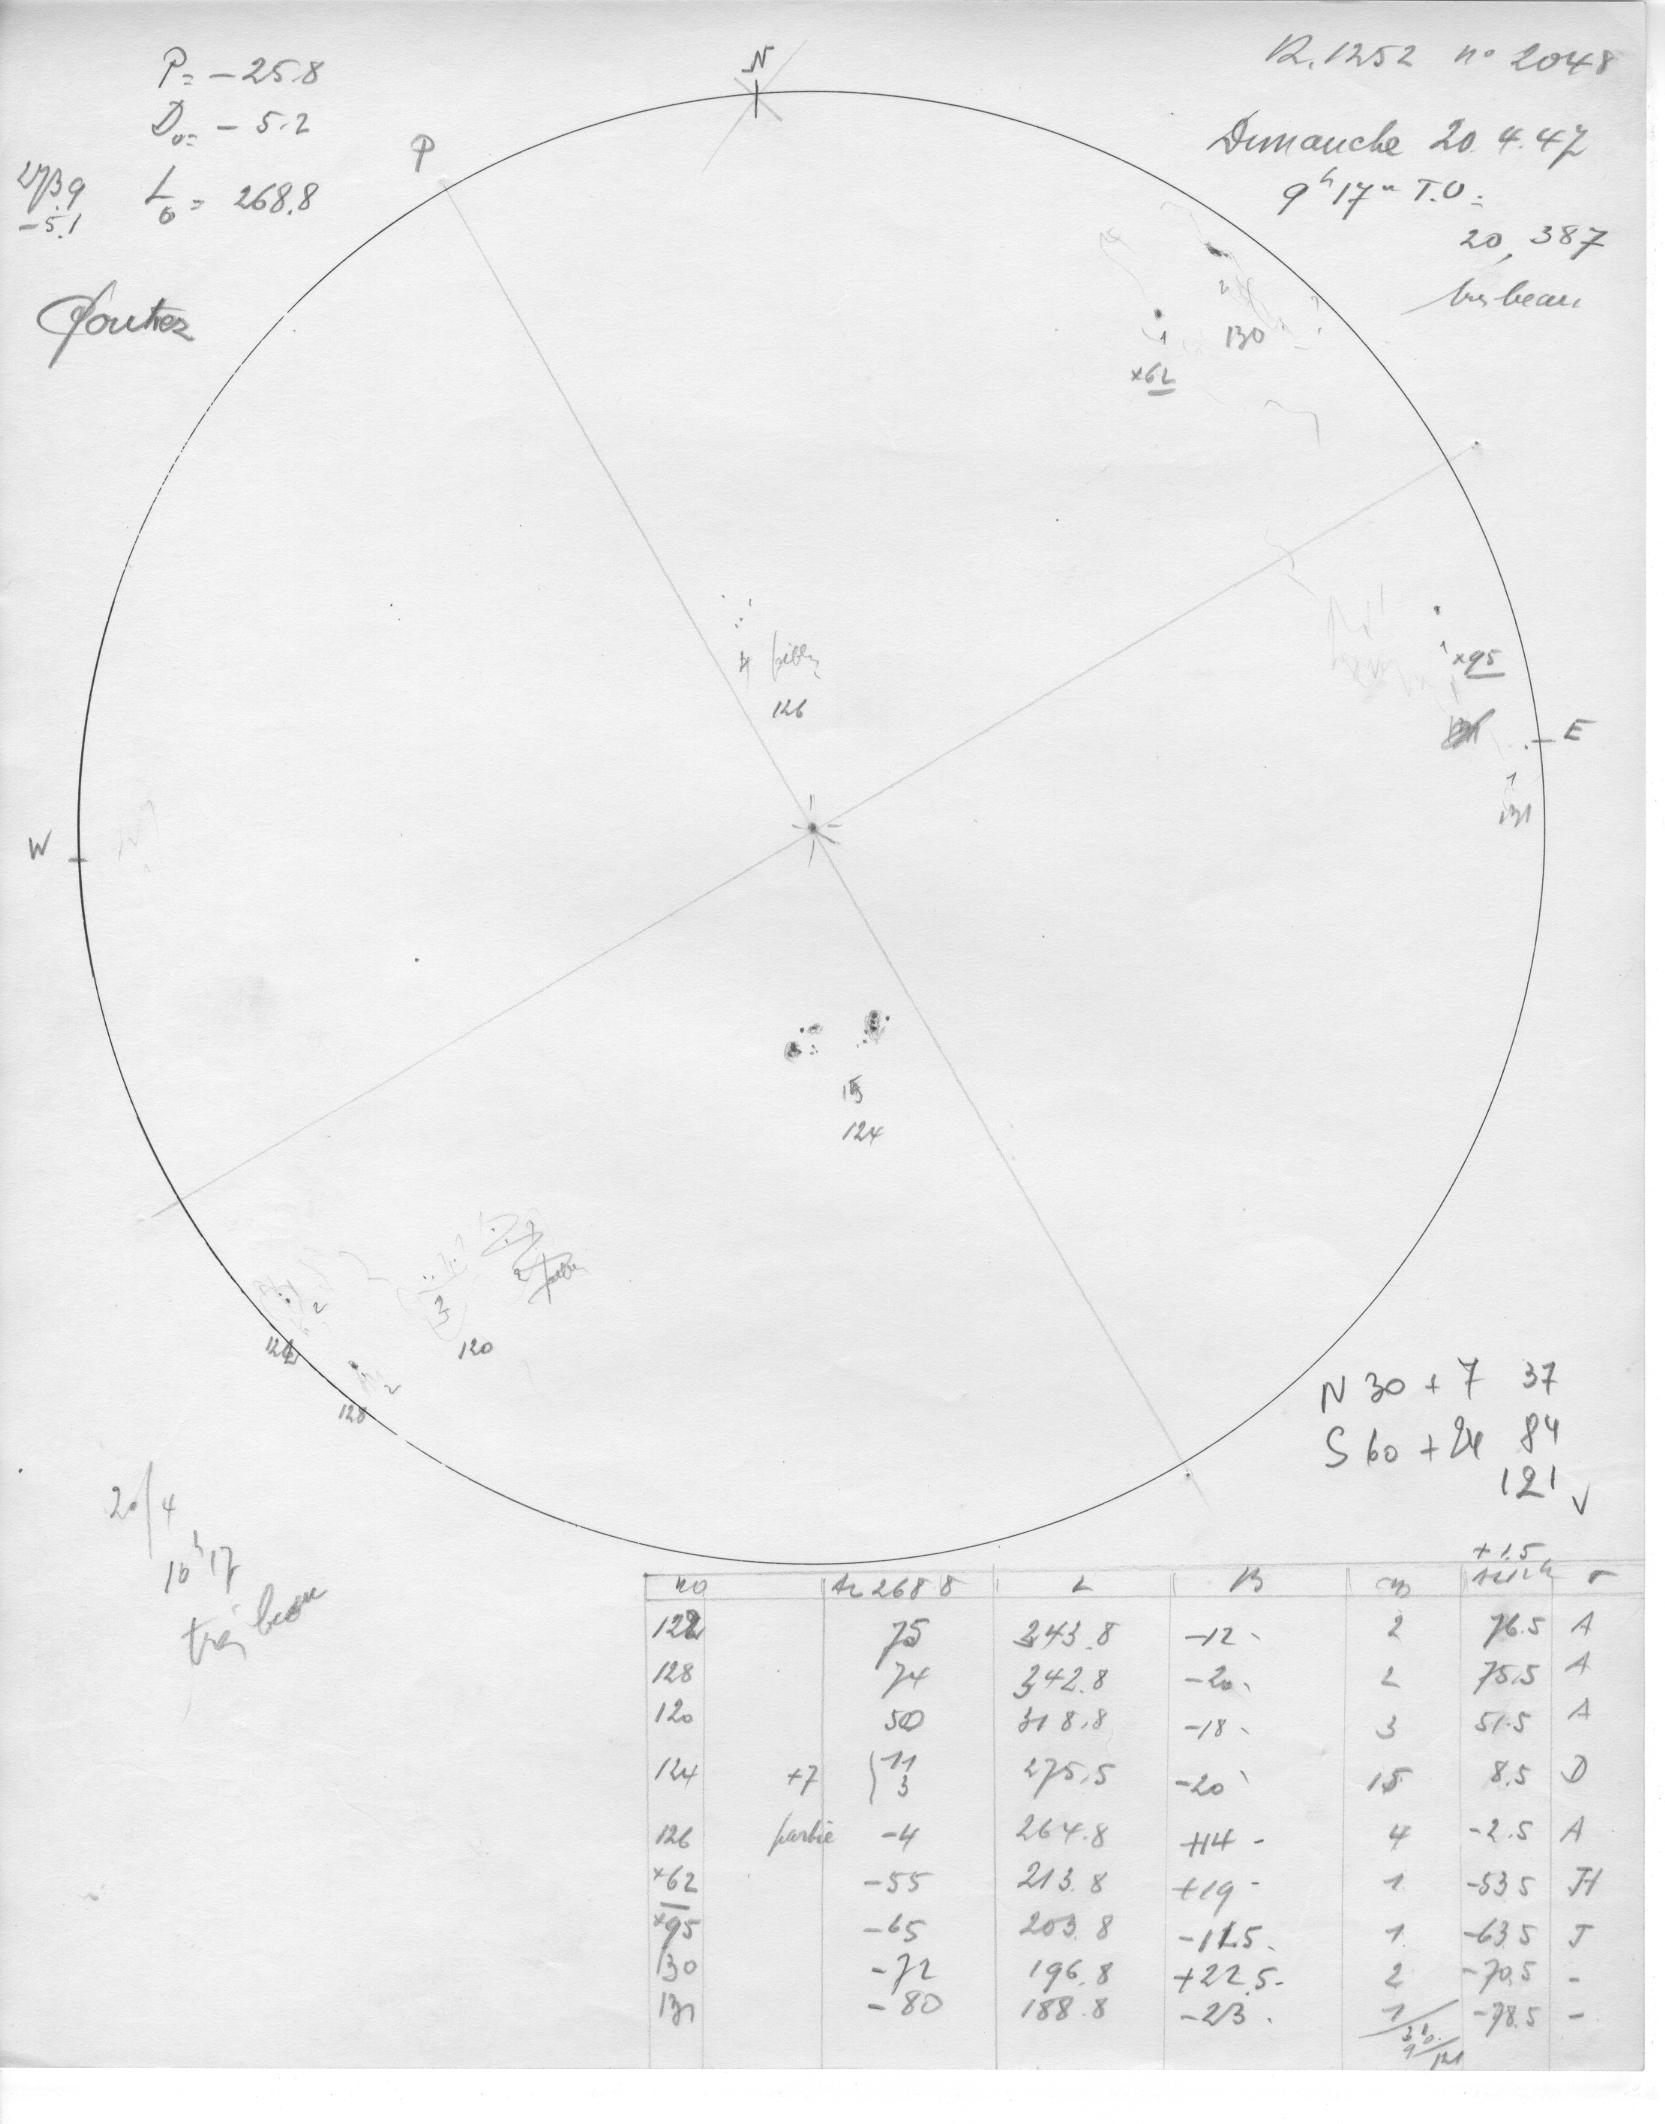 P = -25.8
D₀ = -5.2
L₀ = 268.8
-5.1
N
P
R. 1252 n° 2048
Dimanche 20.4.47
9h 17m T.U. =
20,387
très beau
2
130
1
×62
1
×95
E
1
131
4 faible
126
W
15
124
2
2
128
3
120
N 30 + 7 37
S 60 + 24 84
121
20/4
10h17
très beau
+1.5
no L 268 8 L B
122 75 343.8 -12 2 76.5 A
128 74 342.8 -20 2 75.5 A
120 50 318.8 -18 3 51.5 A
124 +7 { 11 3 275.5 -20 15 8.5 D
126 faible -4 264.8 +14 4 -2.5 A
×62 -55 213.8 +19 1 -53 5 H
×95 -65 203.8 -11.5 1 -63 5 J
130 -72 196.8 +22.5 2 -70.5 -
131 -80 188.8 -23 1 -78.5 -
31
9 121